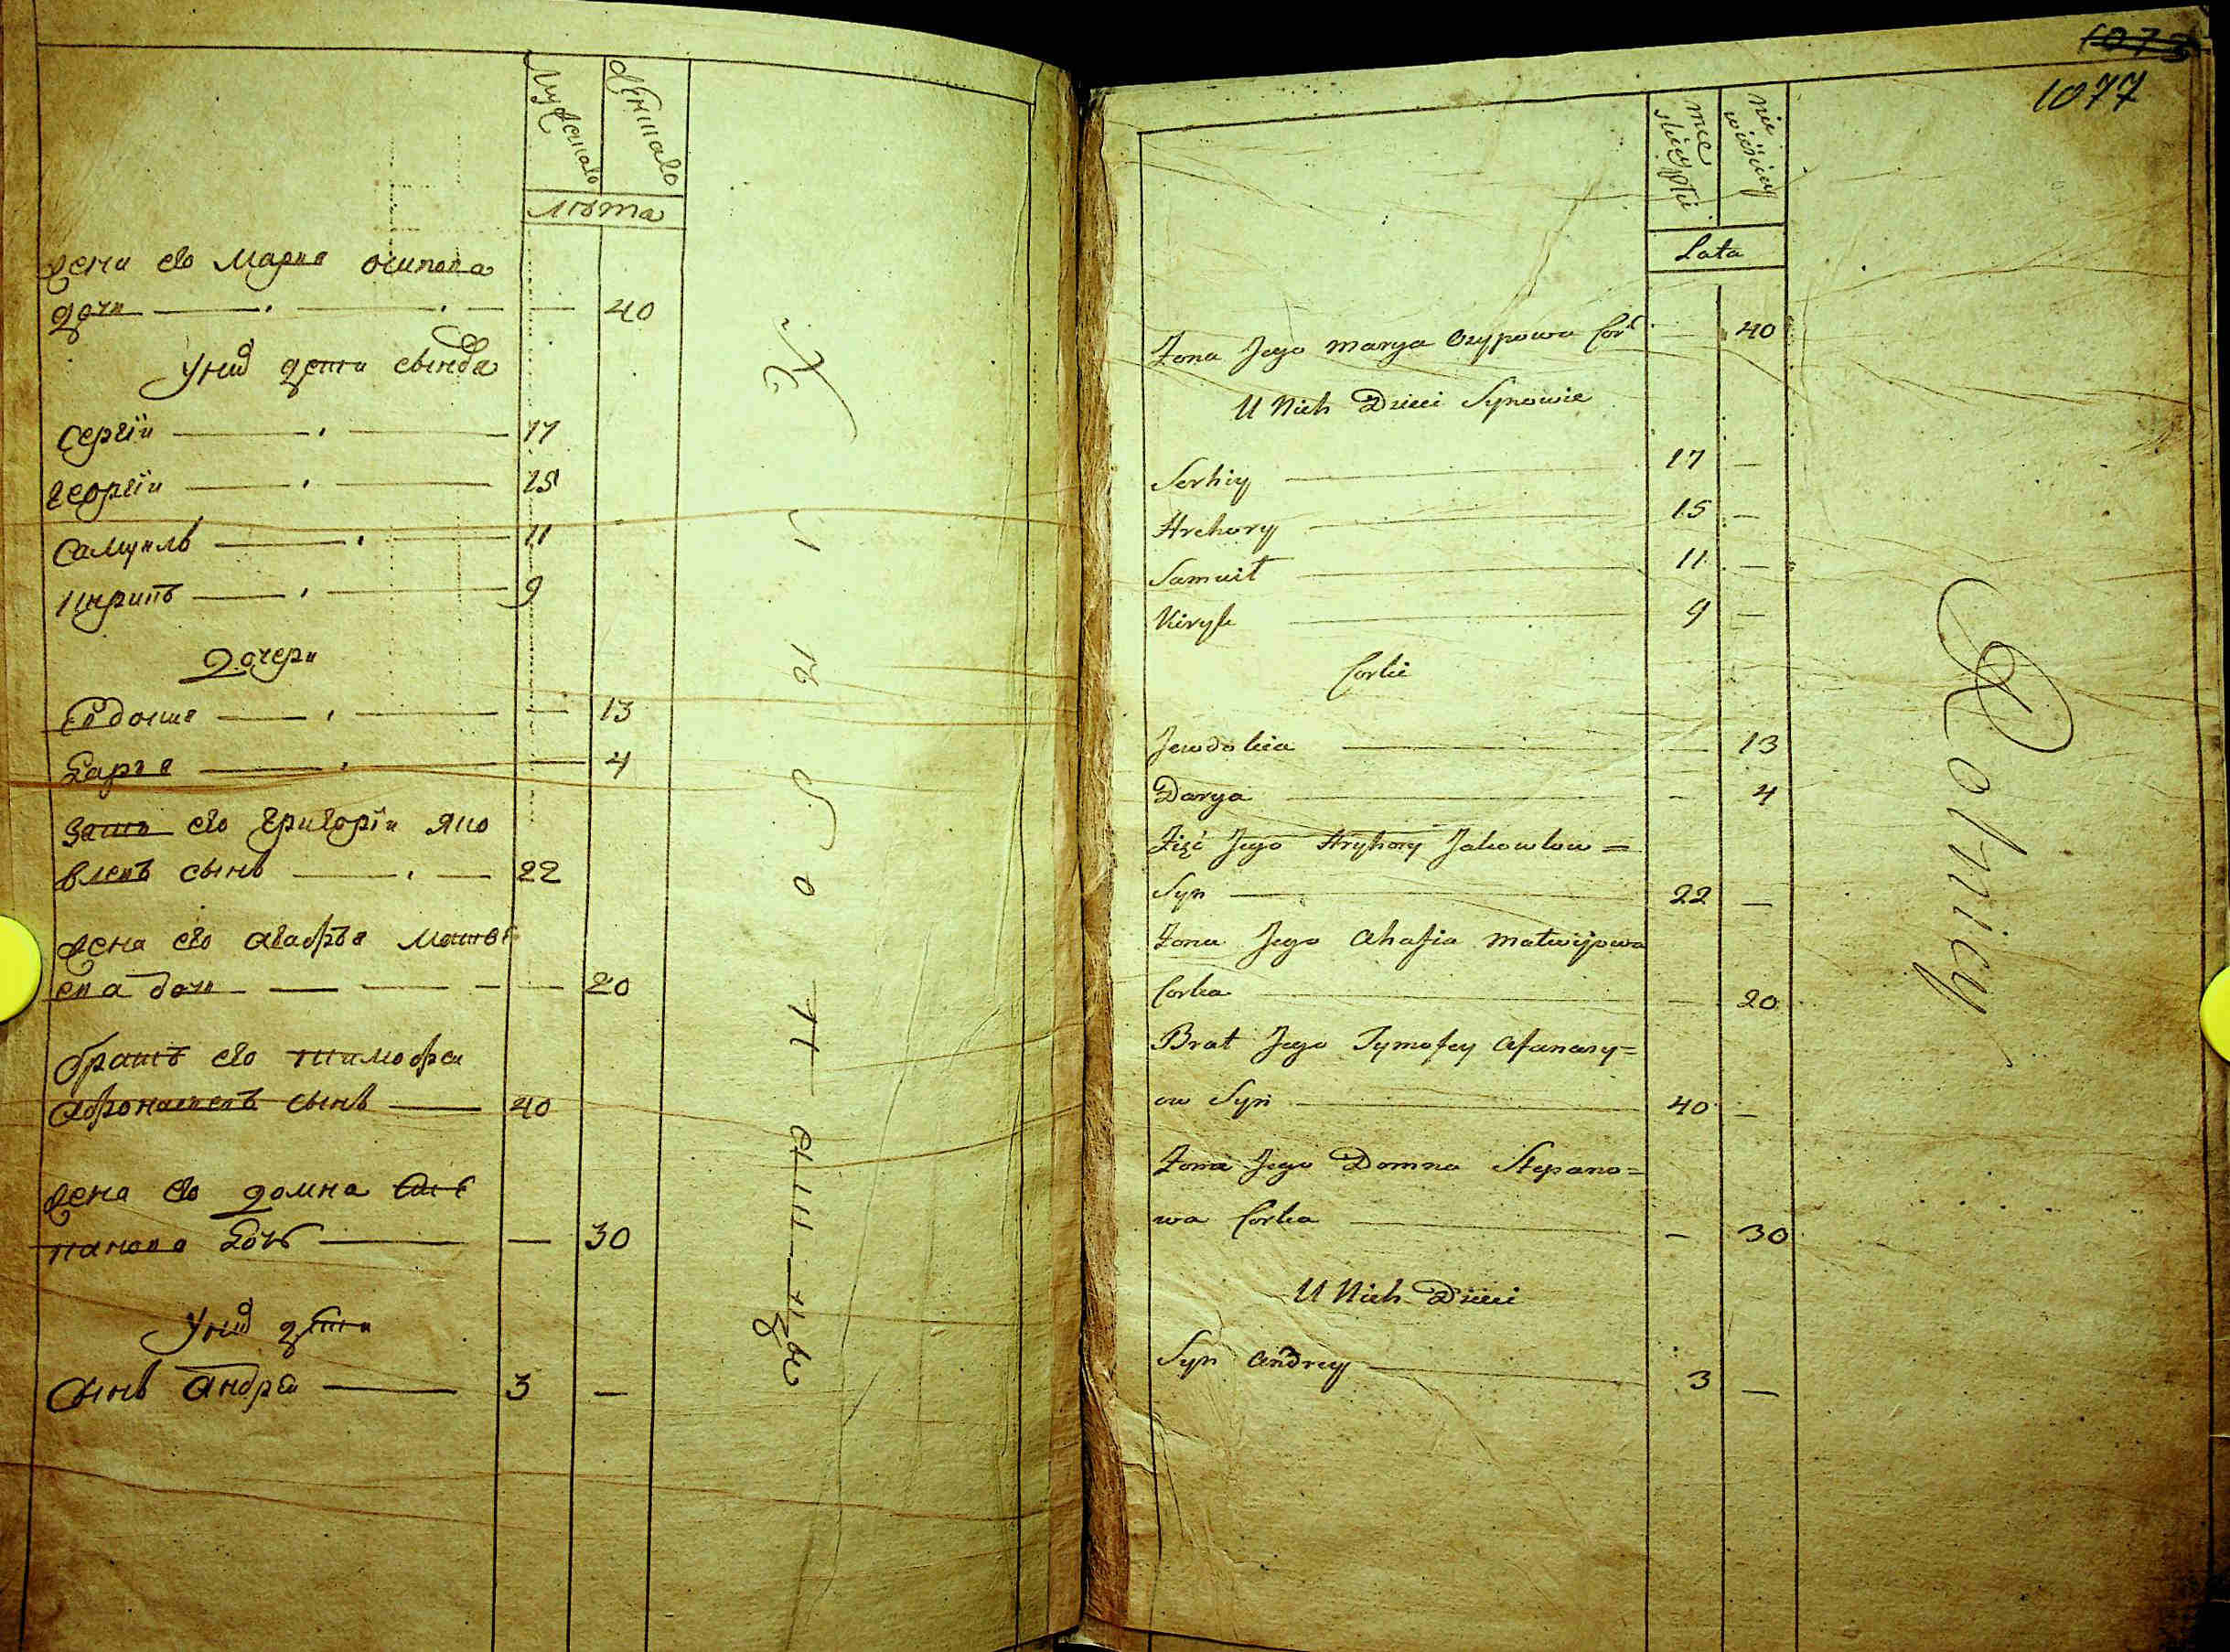 Мужеска
Лѣта
жена его Мария Осипова
дочи 40
У них дети сынове
Сергіи 17
Георгіи 15
Самуилъ 11
Кирикъ 9
дочери
Евдокия 13
Дарья 4
Зять его Григоріи Яко
влевъ сынъ 22
жена его агафья Матве
ева дочи 20
братъ его тимофеи
афонасиевъ сынъ 40
жена его домна Сте
панова дочь 30
У них дети
Сынъ Андреи 3
1077
męzczyzni
niewieściey
Lata
Żona Jego Marya Osypowa Cor 40
U Nich Dzieci Synowie
Serhiy 17 —
Hrehory 15 —
Samuił 11 —
Kiryk 9 —
Corki
Jewdokia — 13
Darya — 4
Zięć Jego Hryhory Jakowlow=
Syn 22 —
Żona Jego Ahafia Matwijowa
Corka — 20
Brat Jego Tymofey Afanasy=
ow Syn 40 —
Żona Jego Domna Stepano=
wa Corka — 30
U Nich Dzieci
Syn Andrey 3 —
Rolnicy